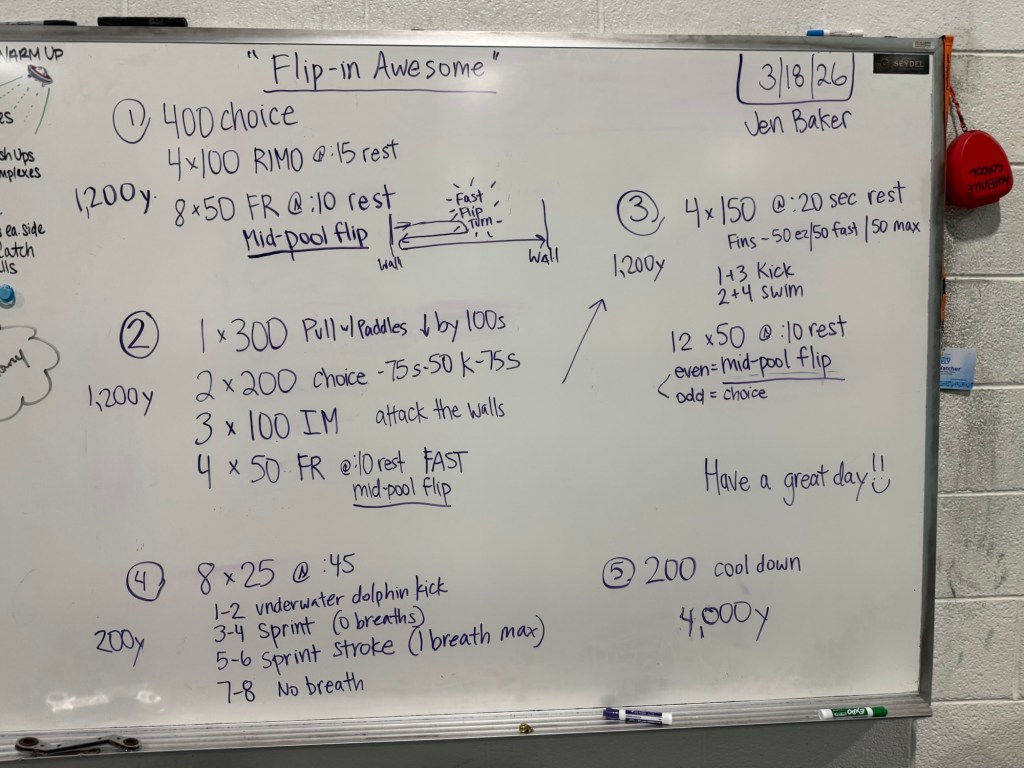 WARM UP
"Flip-in Awesome"
3/18/26
Jen Baker
① 400 choice
4x100 RIMO @:15 rest
1,200y.
8x50 FR @:10 rest
Mid-pool flip
Fast
Flip
Turn
Wall
Wall
② 1x300 Pull w/ Paddles ↓ by 100s
2x200 choice -75s-50k-75s
1,200y
3x100 IM attack the walls
4x50 FR @:10 rest FAST
mid-pool flip
③ 4x150 @:20 sec rest
Fins-50 ez/50 fast/50 max
1,200y
1+3 Kick
2+4 swim
12x50 @:10 rest
even=mid-pool flip
odd=choice
Have a great day!!
④ 8x25 @:45
1-2 underwater dolphin kick
3-4 Sprint (0 breaths)
200y
5-6 Sprint Stroke (1 breath max)
7-8 No breath
⑤ 200 cool down
4,000y
ea. side
EXPO